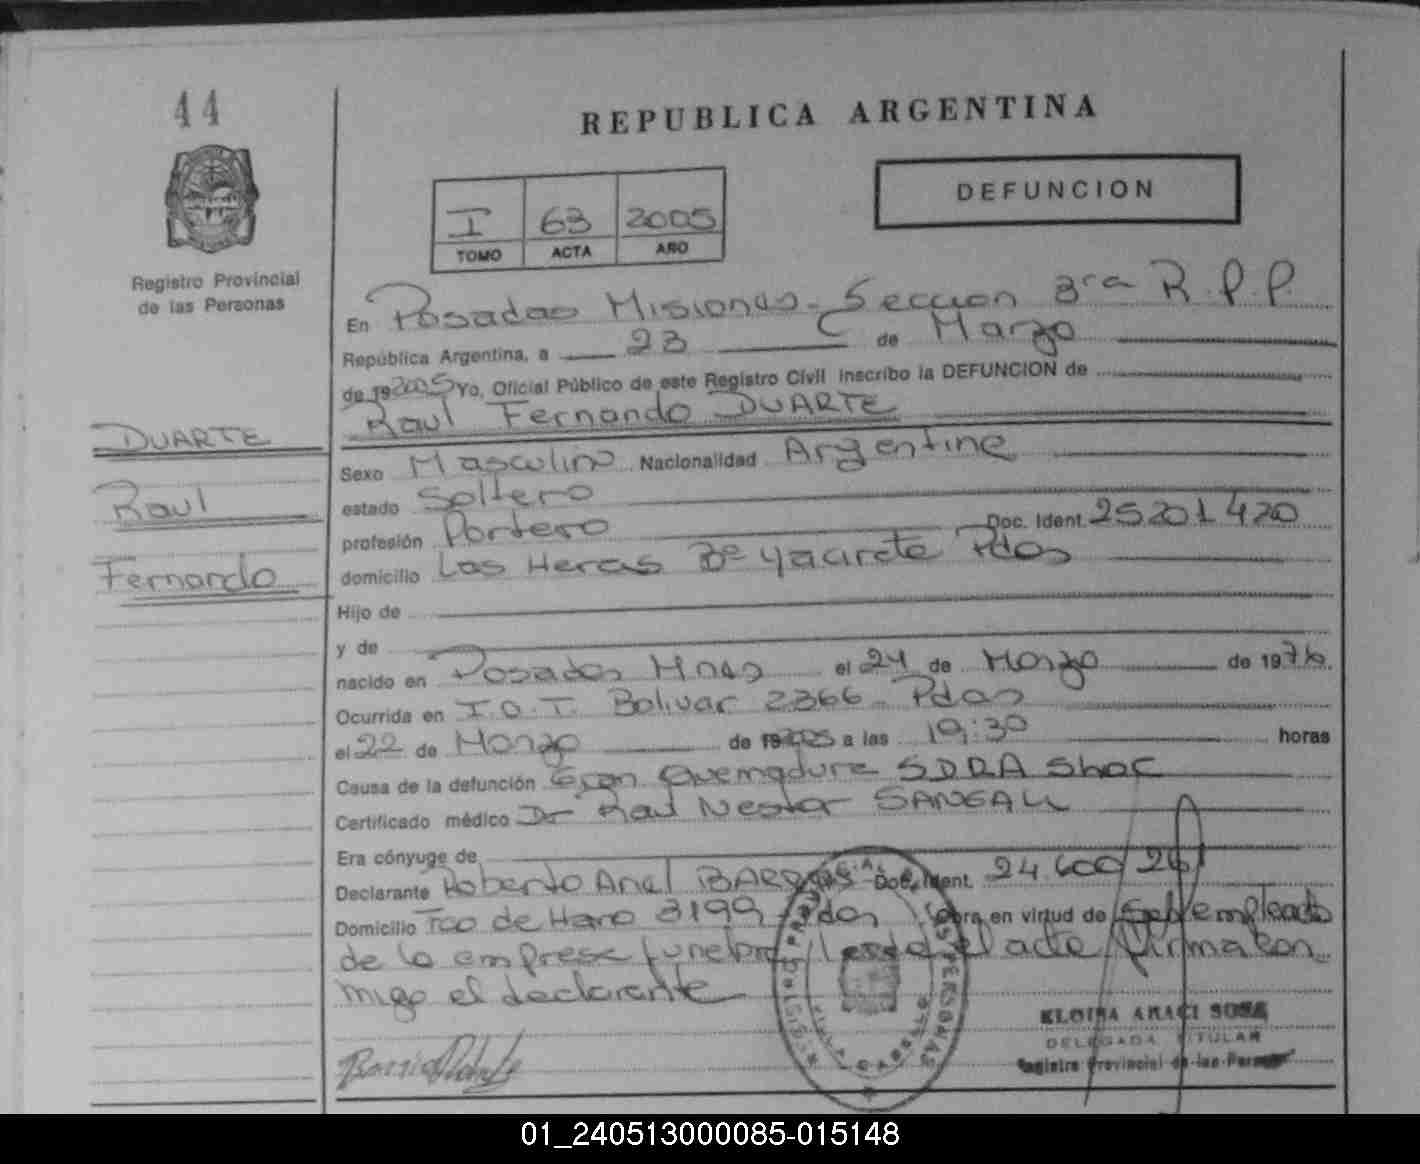 44
REPUBLICA ARGENTINA
DEFUNCION
I 63 2005
TOMO ACTA AÑO
Registro Provincial
de las Personas
En Posadas Misiones - Sección 3ra R.P.P.
República Argentina, a 23 de Marzo
de 192005 Yo, Oficial Público de este Registro Civil inscribo la DEFUNCION de
Raul Fernando DUARTE
DUARTE
Raul
Fernando
Sexo Masculino Nacionalidad Argentina
estado Soltero
profesión Portero Doc. Ident. 25201420
domicilio Las Heras Bº Yacireta Pdas
Hijo de
y de
nacido en Posadas Mnes el 24 de Marzo de 1976.
Ocurrida en I.O.T. Bolivar 2366 - Pdas
el 22 de Marzo de 192005 a las 19:30 horas
Causa de la defunción Gran Quemadura SDRA Shoc
Certificado médico Dr Raul Nestor SANGALL
Era cónyuge de
Declarante Roberto Ariel Doc. Ident. 24.600
Domicilio Tco de Haro 3199 - Pdas Obra en virtud de ser empleado
de la empresa funebre, el acta firma con
migo el declarante
ELOISA ARACI SOSA
DELEGADA TITULAR
Registro Provincial de las Personas
01_240513000085-015148